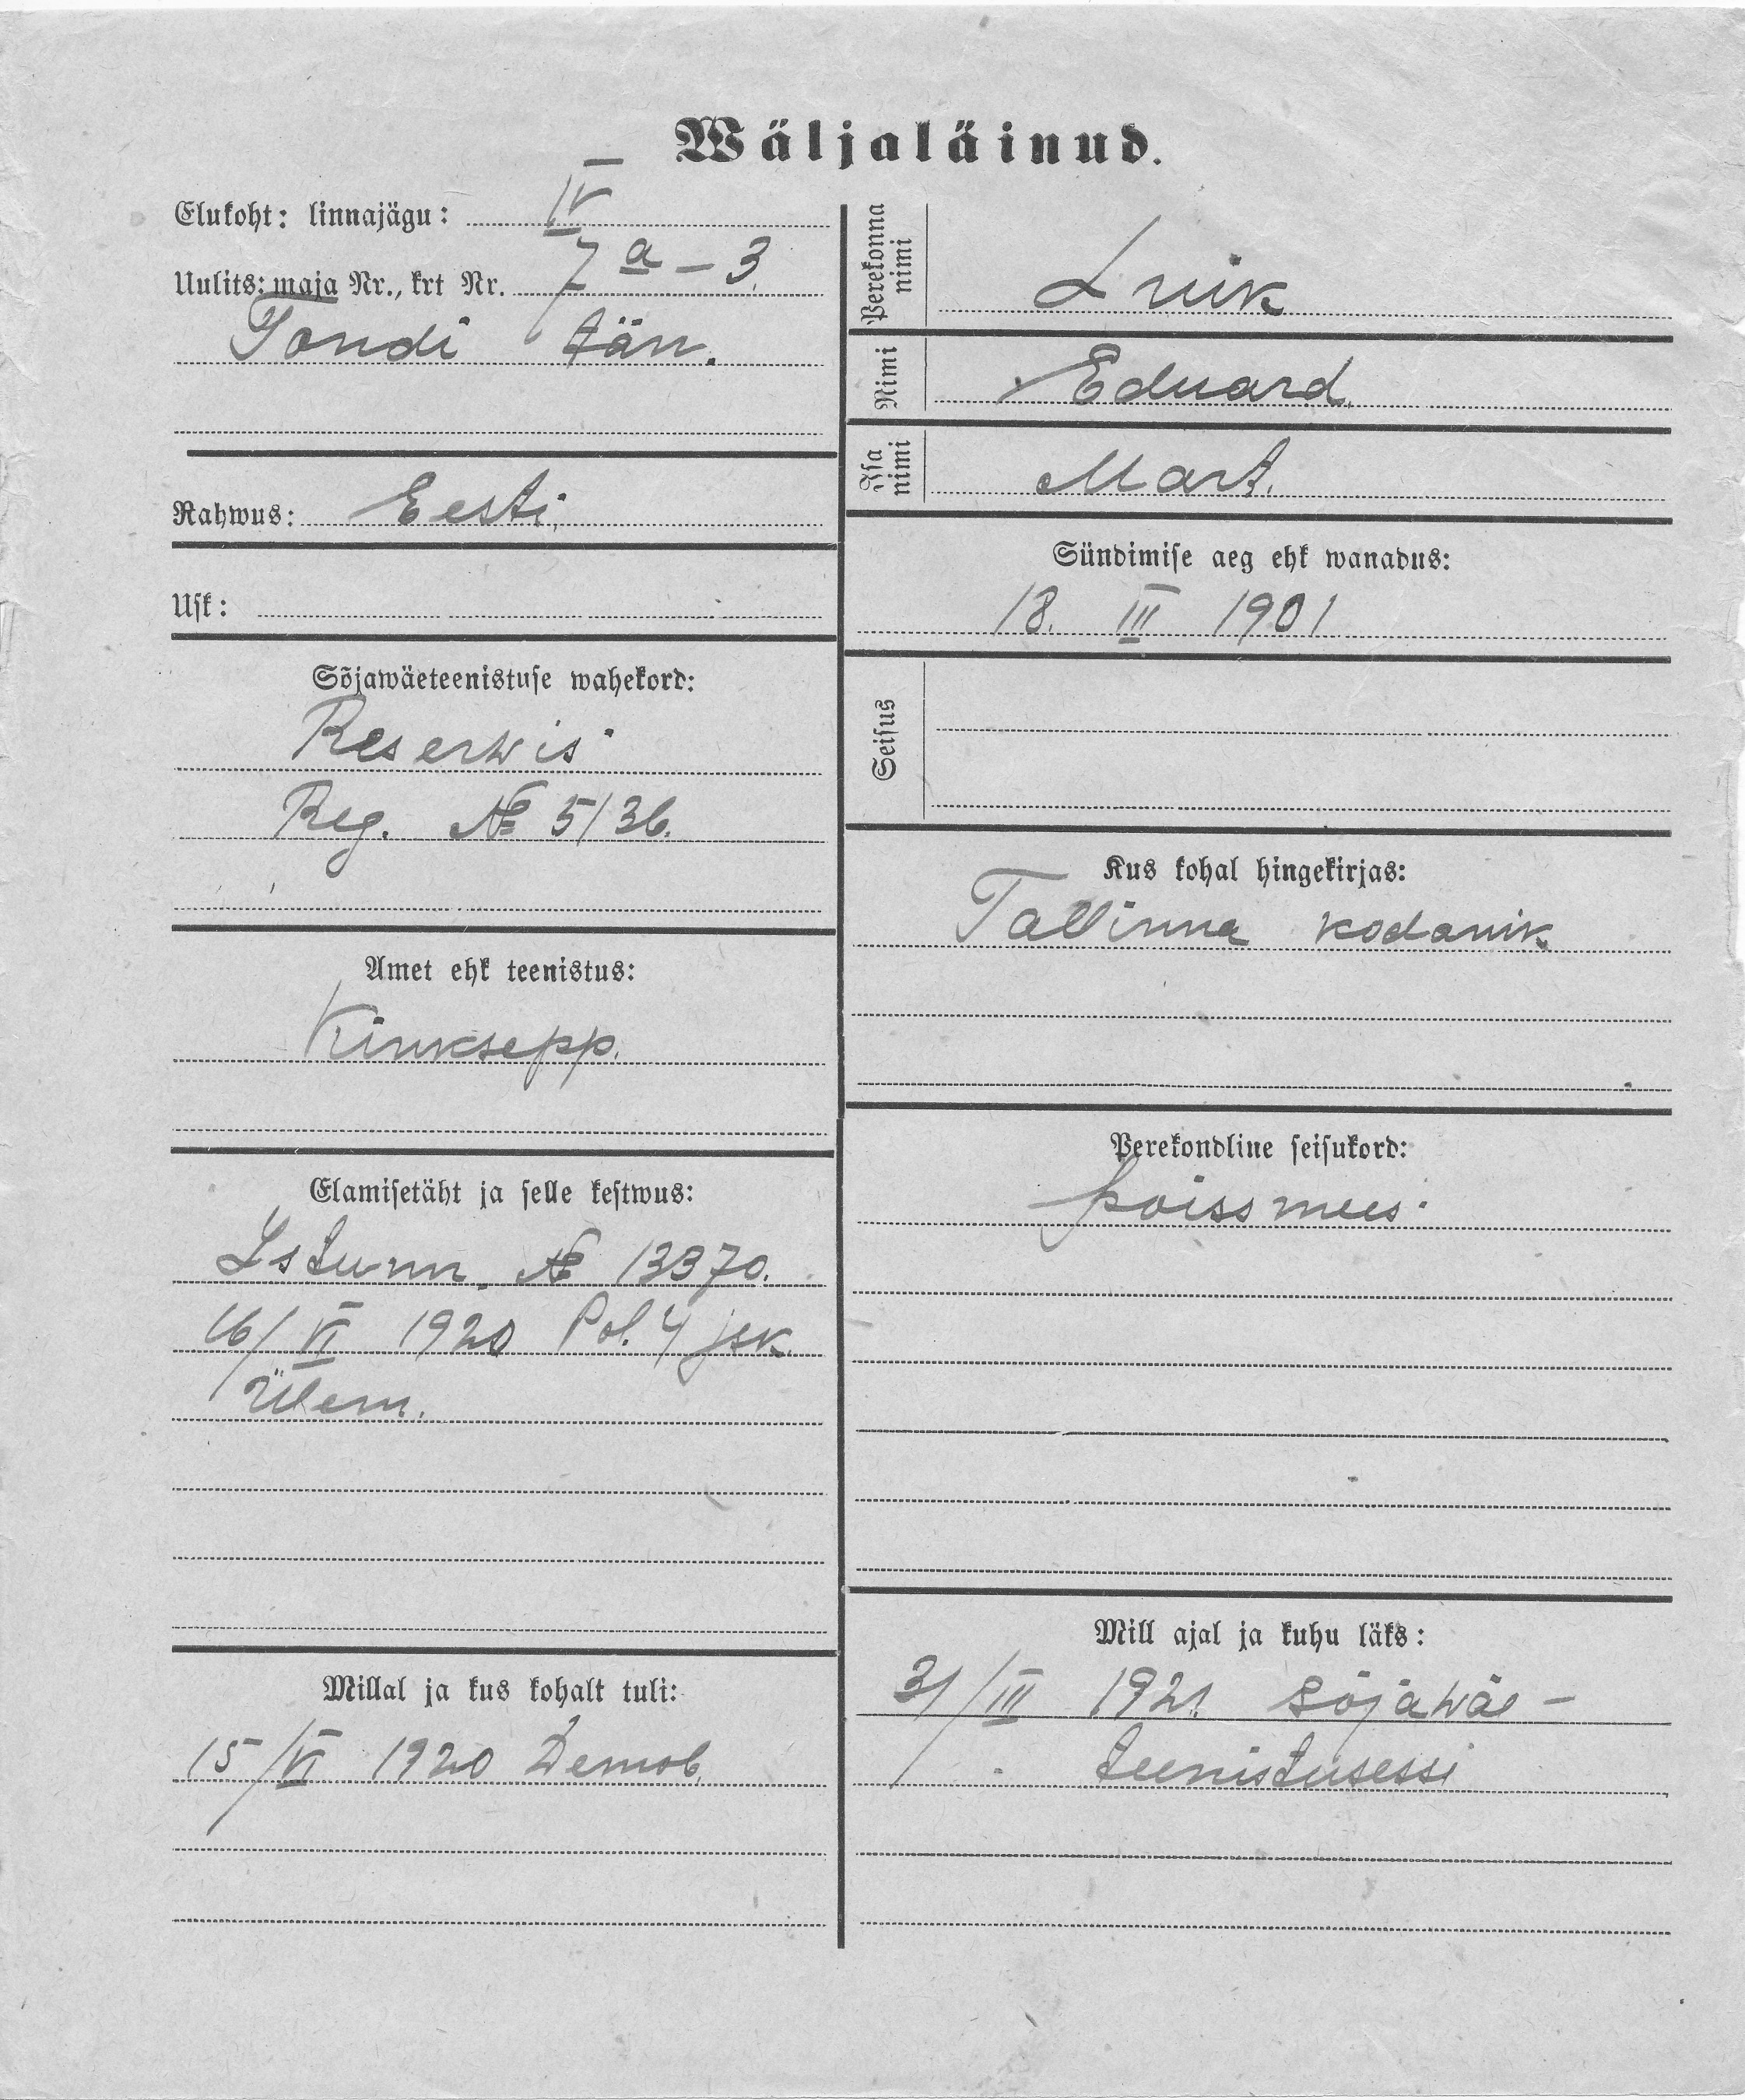 Wäljaläinud.
Elukoht: linnajägu: IV
Uulits: maja Nr., krt Nr. 7 a – 3.
Tondi tän.
Rahwus: Eesti.
Usk:
Sõjawäeteenistuse wahekord:
Reserwis
Reg. № 5/36.
Amet ehk teenistus:
Kinksepp.
Elamisetäht ja selle kestwus:
Istunn. № 13370.
16/VI 1920 Pol. 4 jsk.
Ülem.
Millal ja kus kohalt tuli:
15/VI 1920 Demob.
Perekonna nimi
Luik
Nimi
Eduard.
Isa nimi
Mart.
Sündimise aeg ehk wanadus:
18. III 1901
Seisus
Kus kohal hingekirjas:
Tallinna kodanik.
Perekondline seisukord:
poissmees.
Mill ajal ja kuhu läks:
31/III 1921. sõjawäe-
teenistusessi